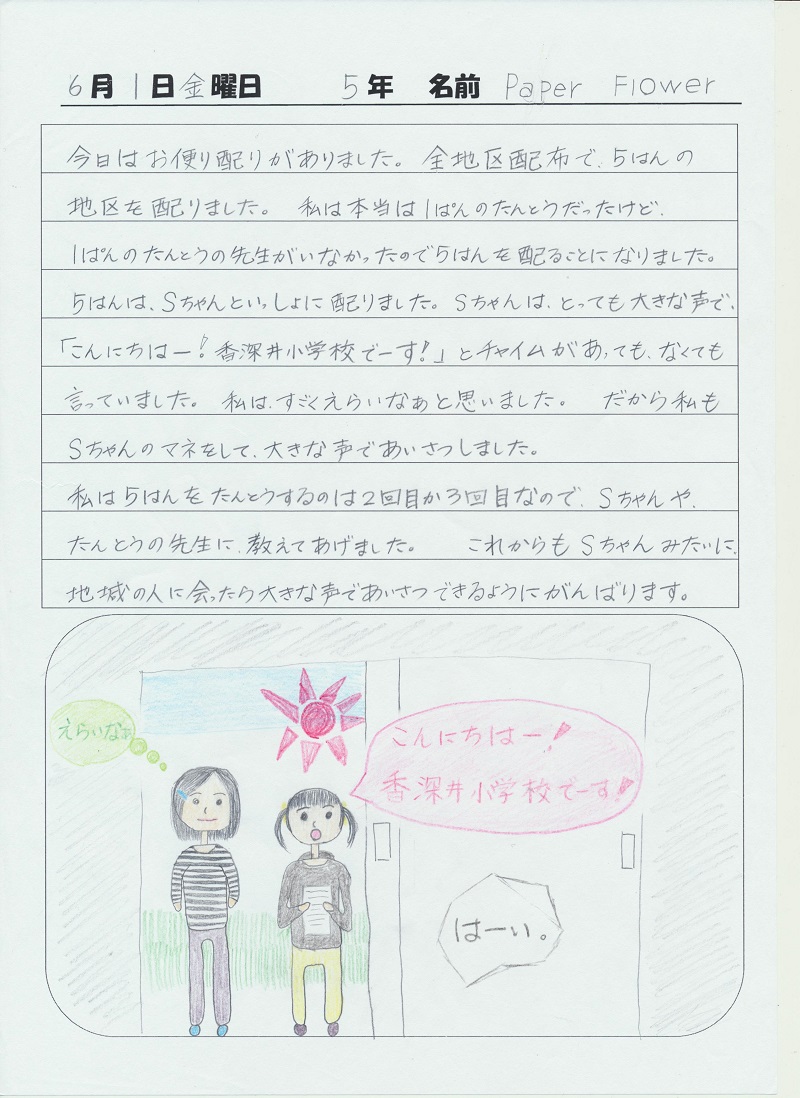 6月1日金曜日　5年　名前 Paper Flower
今日はお便り配りがありました。全地区配布で、5はんの
地区を配りました。私は本当は1ぱんのたんとうだったけど、
1ぱんのたんとうの先生がいなかったので5はんを配ることになりました。
5はんは、Sちゃんといっしょに配りました。Sちゃんは、とっても大きな声で、
「こんにちはー！香深井小学校でーす！」とチャイムがあっても、なくても
言っていました。私は、すごくえらいなぁと思いました。だから私も
Sちゃんのマネをして、大きな声であいさつしました。
私は5はんをたんとうするのは2回目か3回目なので、Sちゃんや、
たんとうの先生に、教えてあげました。これからもSちゃんみたいに、
地城の人に会ったら大きな声であいさつできるようにがんばります。
えらいなぁ
こんにちはー！
香深井小学校でーす！
はーい。